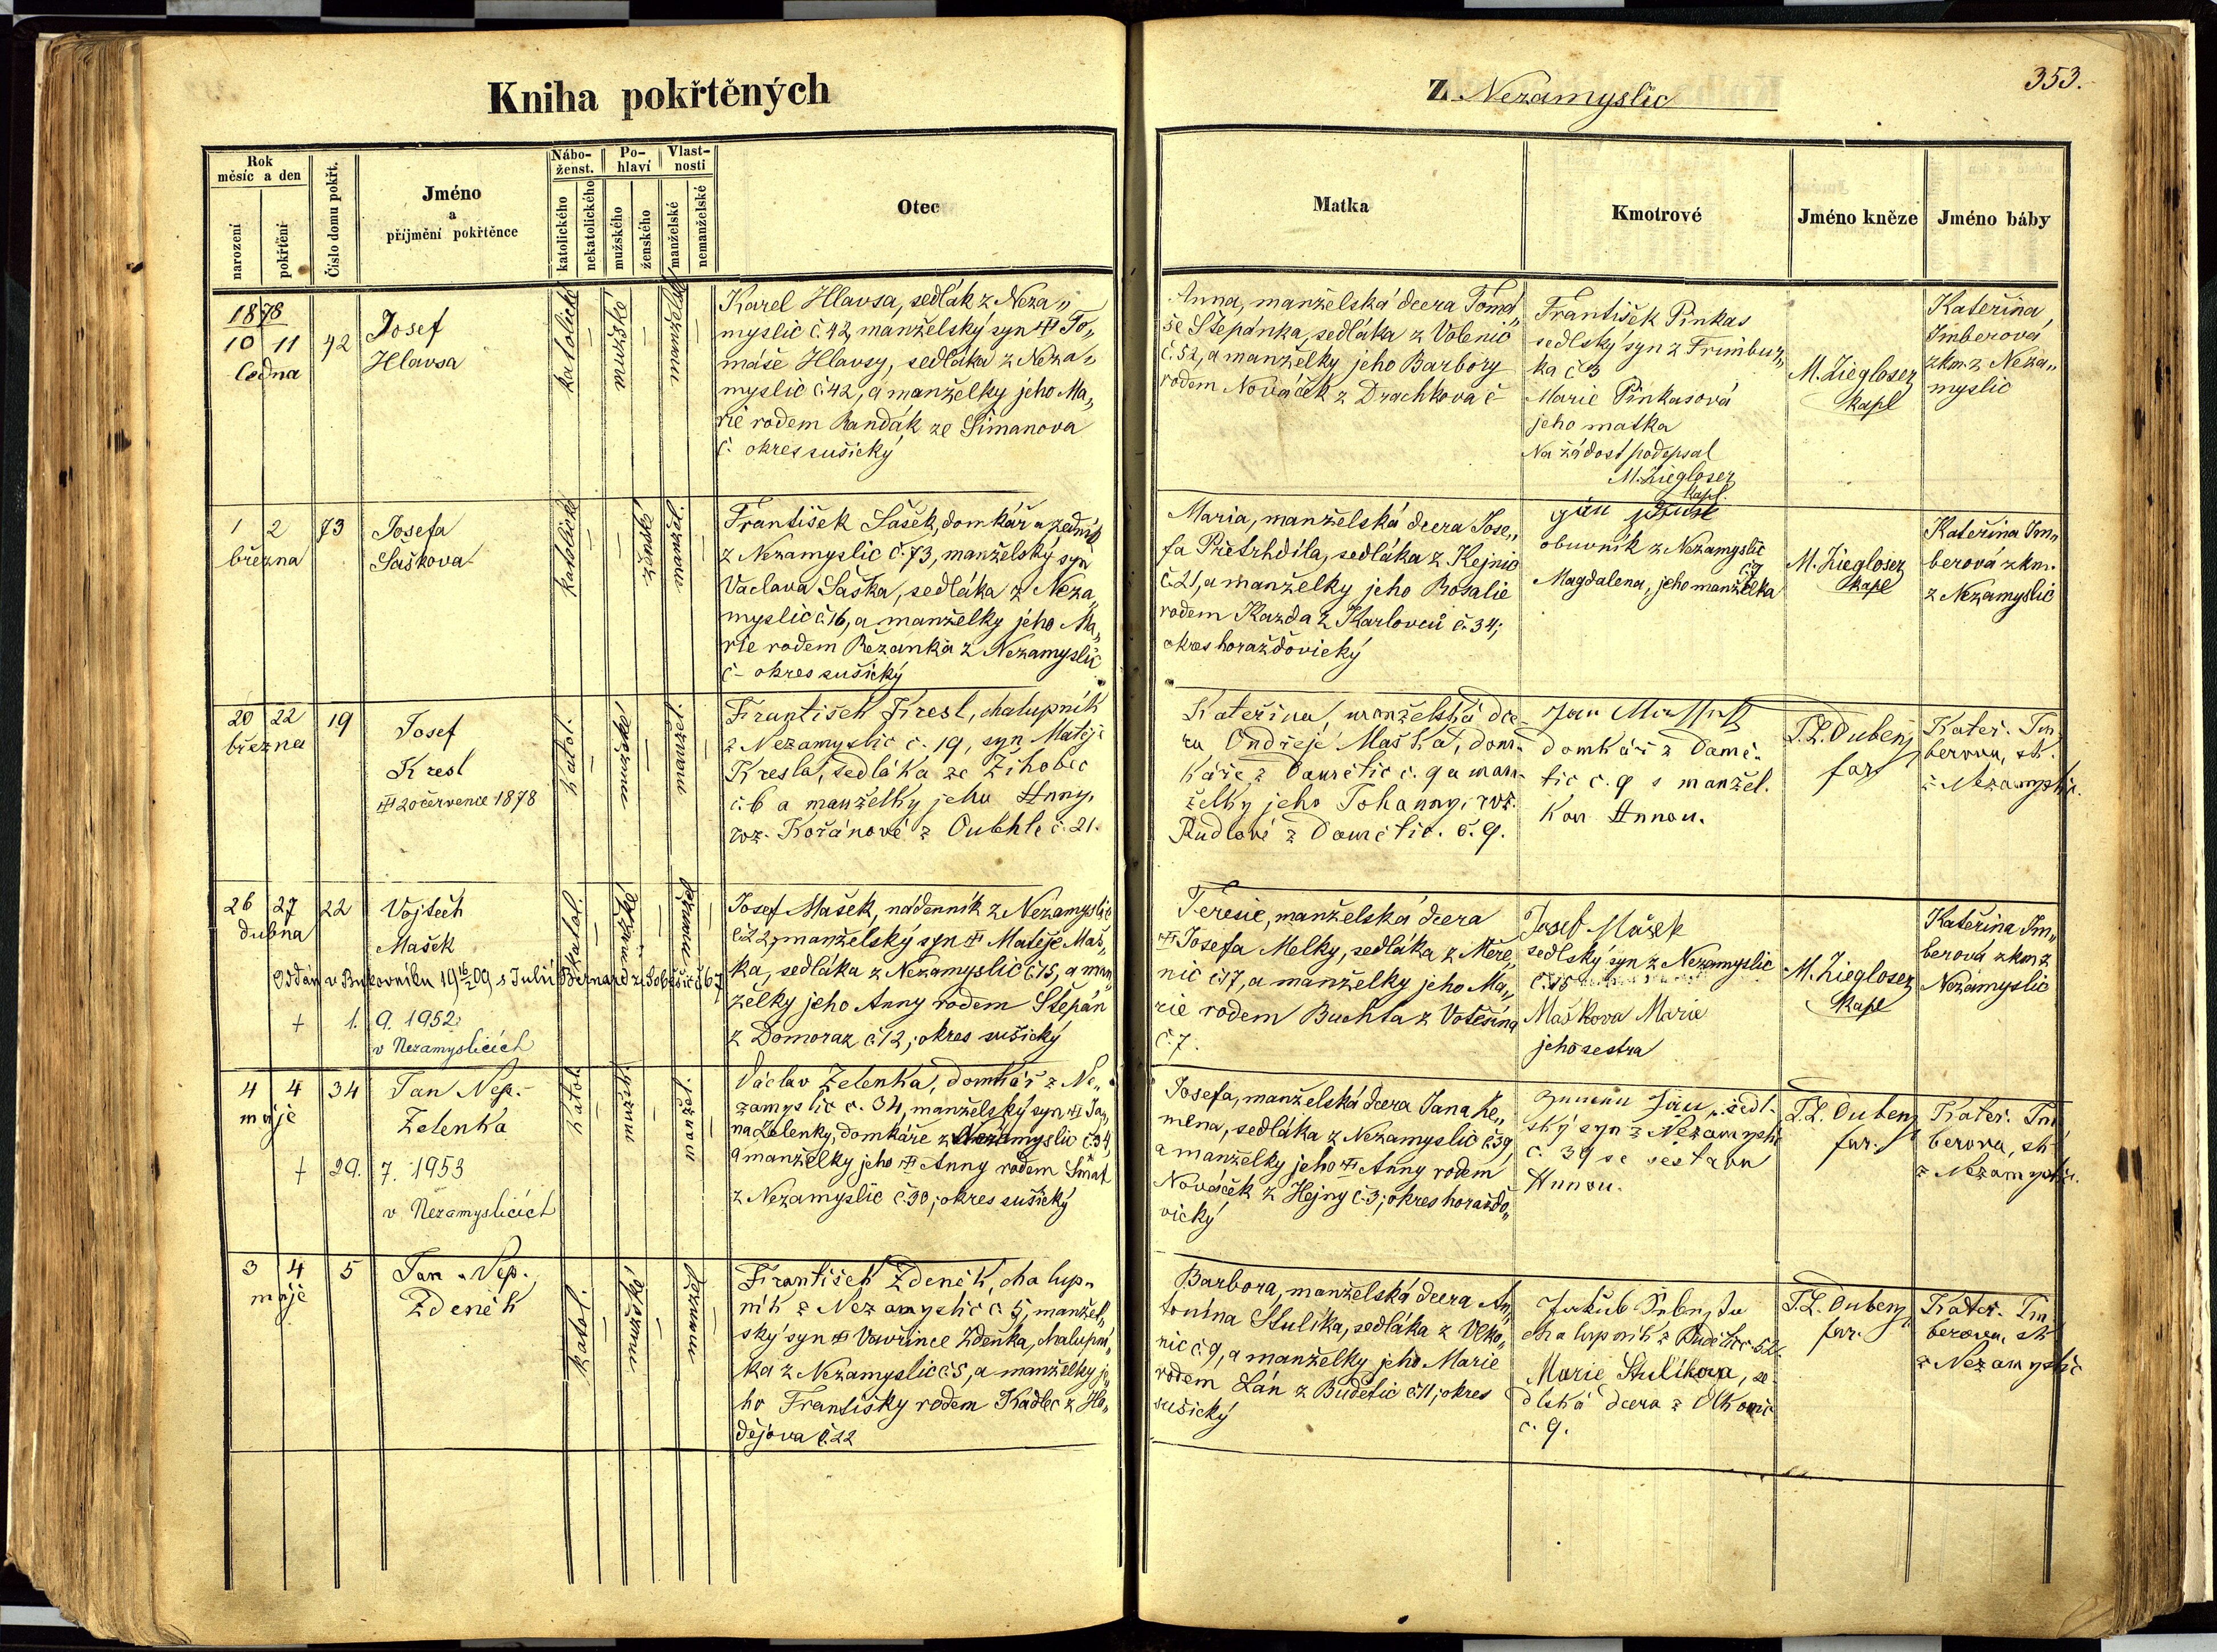 Kniha pokřtěných
Z Nezamyslic
353.
Rok
měsíc a den
narození
pokřtění
Číslo domu pokřt.
Jméno
a
příjmění pokřtěnce
Nábo-
ženst.
katolického
nekatolického
Po-
hlaví
mužského
ženského
Vlast-
nosti
manželské
nemanželské
Otec
Matka
Kmotrové
Jméno kněze
Jméno báby
1878
10 11
ledna
42
Josef
Hlavsa
katolické
mužské
manželské
Karel Hlavsa, sedlák z Neza„
myslic č. 42, manželský syn ♰ To„
máše Hlavsy, sedláka z Neza„
myslic č. 42, a manželky jeho Ma„
rie rodem Randák ze Šimanova
č. okres sušický
Anna, manželská dcera Tomá„
še Štěpánka, sedláka z Volenic
č. 52, a manželky jeho Barbory
rodem Nováček z Drachkova č-
František Pinkas
sedlský syn z Frimbur„
ka č 3
Marie Pinkasová
jeho matka
Na žádost podepsal
M. Ziegloser
kapl.
M. Ziegloser
kapl
Kateřina
Imberová
zkm. z Neza„
myslic
1 2
března
73
Josefa
Saškova
katolické
ženské
manžel.
František Sašek, domkář a zedník
z Nezamyslic č. 73, manželský syn
Vaclava Saška, sedláka z Neza„
myslic č. 16, a manželky jeho Ma„
rie rodem Řežanka z Nezamyslic
č- okres sušický
Maria, manželská dcera Jose„
fa Přetrhdila, sedláka z Kejnic
č. 21, a manželky jeho Rosalie
rodem Kazda z Karlovců č. 34;
okres horažďovický
obuvník z Nezamyslic
č. 7
Magdalena, jeho manželka
M. Ziegloser
kapl
Kateřina Im„
berová zkm.
z Nezamyslic
20 22
března
19
Josef
Kresl
♰ 20 července 1878
katol.
mužské
manžel.
František Kresl, chalupník
z Nezamyslic č. 19, syn Matěje
Kresla, sedláka ze Žihobec
č. 6 a manželky jeho Anny,
roz. Kořánové z Oubhle č. 21.
Kateřina, manželská dce-
ra Ondřeje Maška, dom-
káře z Damětic č. 9 a man-
želky jeho Johanny, roz.
Rudlové z Damětic. č. 9.
Jan
domkář z Damě-
tic č. 9 s manžel.
kou Annou.
T. L. Dubenj
far.
Kateř. Im
berova, zk.
z Nezamyslic.
26 27
dubna
22
Vojtěch
Mašek
Oddán v Bukovníku 19 16/2 09 s Julií Bernard ze Soběšic č 67
+ 1. 9. 1952
v Nezamyslicích
katol.
mužské
manžel
Josef Mašek, nádenník z Nezamyslic
č. 22, manželský syn ♰ Matěje Maš„
ka, sedláka z Nezamyslic č. 15, a man„
želky jeho Anny rodem Štěpán
z Domoraz č. 12; okres sušický
Teresie, manželská dcera
♰ Josefa Melky, sedláka z Měče„
nic č. 17, a manželky jeho Ma„
rie rodem Buchta z Votěšína
č. 7.
Josef Mašek
sedlský syn z Nezamyslic
č. 15
Maškova Marie
jeho sestra
M. Ziegloser
kapl
Kateřina Im„
berová zkm z
Nezamyslic
4 4
máje
34
Jan Nep.
Zelenka
+ 29. 7. 1953
v Nezamyslicích
katol.
mužské
manžel.
Václav Zelenka, domkář z Ne„
zamyslic č. 34, manželský syn ♰ Ja„
na Zelenky, domkáře z Nezamyslic č. 34,
a manželky jeho ♰ Anny rodem Šmat
z Nezamyslic č. 30; okres sušický
Josefa, manželská dcera Jana Ke„
mena, sedláka z Nezamyslic č. 39,
a manželky jeho ♰ Anny rodem
Nováček z Hejny č. 3; okres horažďo„
vický
Jan, sedl-
ský syn z Nezamyslic
č. 39 se sestrou
Annou.
T. L. Dubenj
far.
Kateř. Im
berova, zk
z Nezamyslic.
3 4
máje
5
Jan Nep.
Zdeněk
katol.
mužské
manžel
František Zdeněk, chalup-
ník z Nezamyslic č. 5, manžel„
ský syn ♰ Vavřince Zdeňka, chalupní„
ka z Nezamyslic č. 5, a manželky je„
ho Františky rodem Kadlec z Ho„
dějova č. 22
Barbora, manželská dcera An„
tonína Stulíka, sedláka z Vlko„
nic č. 9, a manželky jeho Marie
rodem Lán z Budětic č. 11; okres
sušický
Jakub
chalupník z Budětic 52.
Marie Stulíkova, se
dlská dcera z Vlkonic
č. 9.
T. L. Dubenj
far.
Kateř. Im
berova, zk
z Nezamyslic